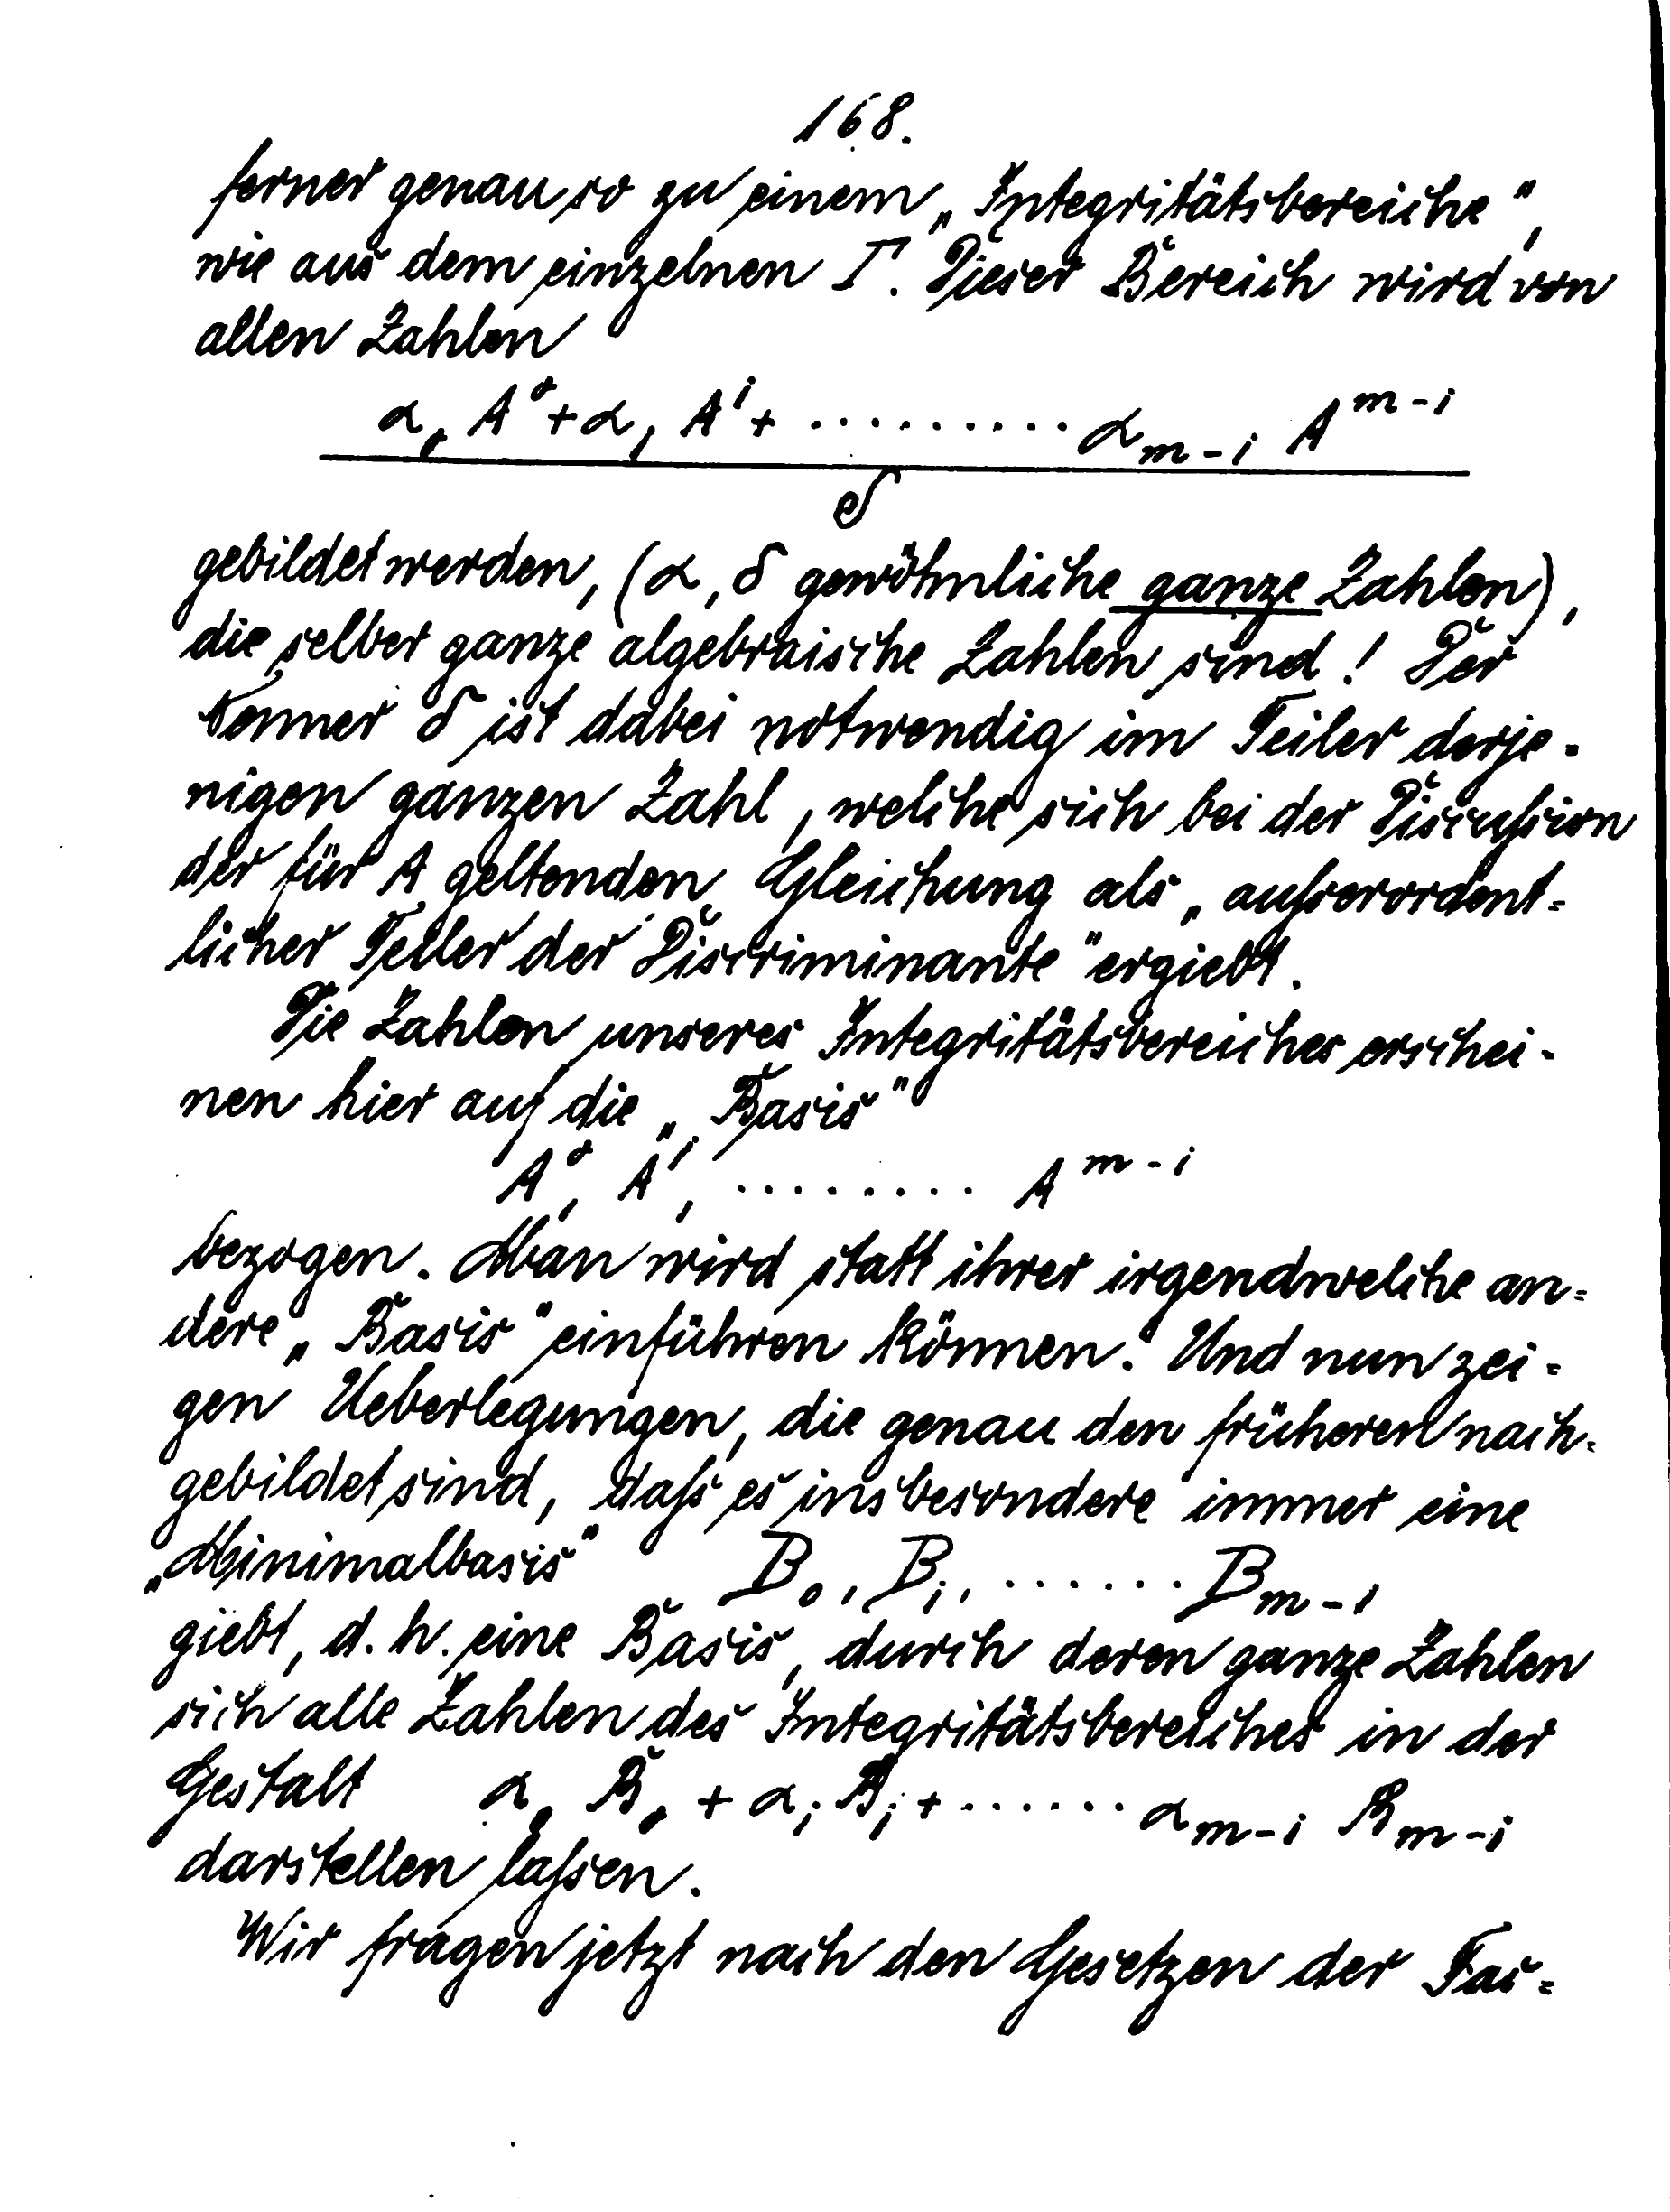 168.
ferner genau so zu einem „Integritätsbereiche“,
wie aus dem einzelnen Γ. Dieser Bereich wird von
allen Zahlen
α₀ A⁰ + α₁ A¹ + .......... α_{m-1} A^{m-1}
δ
gebildet werden, (α, δ gewöhnliche ganze Zahlen),
die selber ganze algebraische Zahlen sind! Der
Nenner δ ist dabei notwendig im Teiler derje-
nigen ganzen Zahl, welche sich bei der Discussion
der für A geltenden Gleichung als „ausserordent-
licher Teiler der Discriminante“ ergiebt.
Die Zahlen unseres Integritätsbereiches erschei-
nen hier auf die „Basis“
A⁰, A¹, ......... A^{m-1}
bezogen. Man wird statt ihrer irgendwelche an-
dere „Basis“ einführen können. Und nun zei-
gen Ueberlegungen, die genau den früheren nach-
gebildet sind, dass es insbesondere immer eine
„Minimalbasis“ B₀, B₁, ....... B_{m-1}
giebt, d. h. eine Basis, durch deren ganze Zahlen
sich alle Zahlen des Integritätsbereiches in der
Gestalt α₀ B₀ + α₁ B₁ + ....... α_{m-1} B_{m-1}
darstellen lassen.
Wir fragen jetzt nach den Gesetzen der Fac-